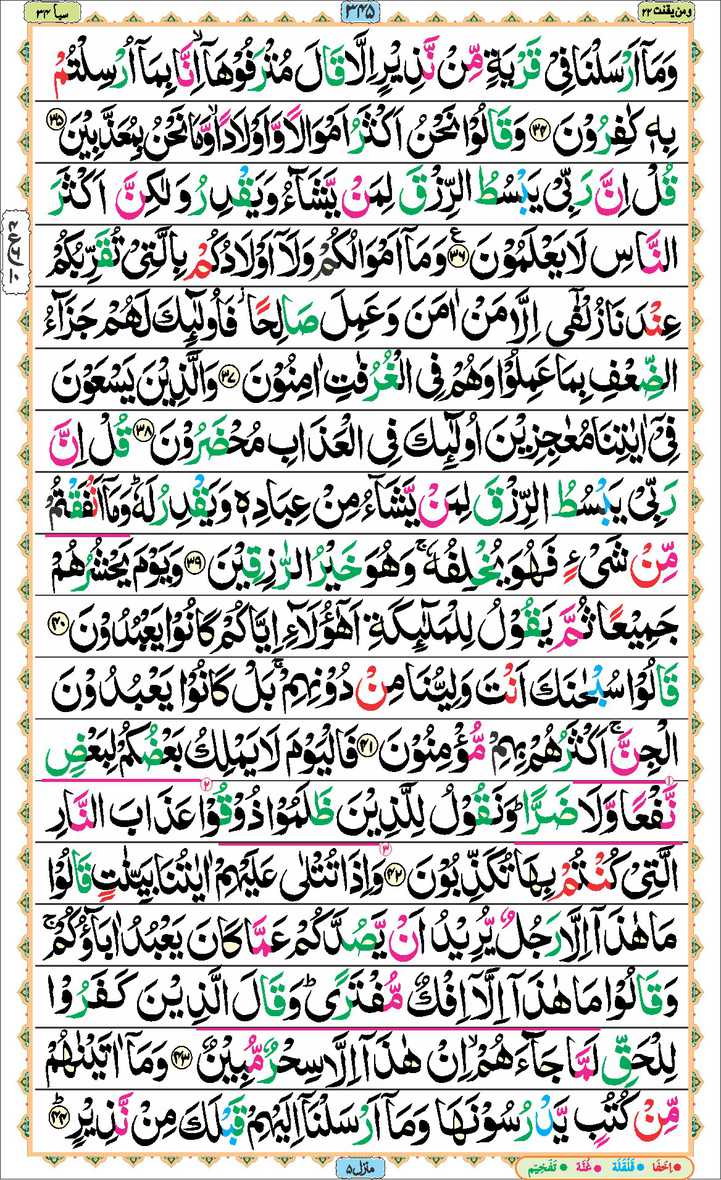 ومن يقنت ۲۲ ۳۴۵ سبا ۳۴
وَمَاۤ اَرْسَلْنَا فِیْ قَرْیَةٍ مِّنْ نَّذِیْرٍ اِلَّا قَالَ مُتْرَفُوْهَاۤ ۙ اِنَّا بِمَاۤ اُرْسِلْتُمْ
بِهٖ كٰفِرُوْنَ ﴿۳۴﴾ وَ قَالُوْا نَحْنُ اَكْثَرُ اَمْوَالًا وَّ اَوْلَادًا ۙ وَّ مَا نَحْنُ بِمُعَذَّبِیْنَ ﴿۳۵﴾
قُلْ اِنَّ رَبِّیْ یَبْسُطُ الرِّزْقَ لِمَنْ یَّشَآءُ وَ یَقْدِرُ وَ لٰكِنَّ اَكْثَرَ
النَّاسِ لَا یَعْلَمُوْنَ ﴿۳۶﴾ ع وَ مَاۤ اَمْوَالُكُمْ وَ لَاۤ اَوْلَادُكُمْ بِالَّتِیْ تُقَرِّبُكُمْ
عِنْدَنَا زُلْفٰۤی اِلَّا مَنْ اٰمَنَ وَ عَمِلَ صَالِحًا ؗ فَاُولٰٓىِٕكَ لَهُمْ جَزَآءُ
الضِّعْفِ بِمَا عَمِلُوْا وَ هُمْ فِی الْغُرُفٰتِ اٰمِنُوْنَ ﴿۳۷﴾ وَ الَّذِیْنَ یَسْعَوْنَ
فِیْۤ اٰیٰتِنَا مُعٰجِزِیْنَ اُولٰٓىِٕكَ فِی الْعَذَابِ مُحْضَرُوْنَ ﴿۳۸﴾ قُلْ اِنَّ
رَبِّیْ یَبْسُطُ الرِّزْقَ لِمَنْ یَّشَآءُ مِنْ عِبَادِهٖ وَ یَقْدِرُ لَهٗ ؕ وَ مَاۤ اَنْفَقْتُمْ
مِّنْ شَیْءٍ فَهُوَ یُخْلِفُهٗ ۚ وَ هُوَ خَیْرُ الرّٰزِقِیْنَ ﴿۳۹﴾ وَ یَوْمَ یَحْشُرُهُمْ
جَمِیْعًا ثُمَّ یَقُوْلُ لِلْمَلٰٓىِٕكَةِ اَهٰۤؤُلَآءِ اِیَّاكُمْ كَانُوْا یَعْبُدُوْنَ ﴿۴۰﴾
قَالُوْا سُبْحٰنَكَ اَنْتَ وَلِیُّنَا مِنْ دُوْنِهِمْ ۚ بَلْ كَانُوْا یَعْبُدُوْنَ
الْجِنَّ ۚ اَكْثَرُهُمْ بِهِمْ مُّؤْمِنُوْنَ ﴿۴۱﴾ فَالْیَوْمَ لَا یَمْلِكُ بَعْضُكُمْ لِبَعْضٍ
نَّفْعًا وَّ لَا ضَرًّا ؕ وَ نَقُوْلُ لِلَّذِیْنَ ظَلَمُوْا ذُوْقُوْا عَذَابَ النَّارِ
الَّتِیْ كُنْتُمْ بِهَا تُكَذِّبُوْنَ ﴿۴۲﴾ وَ اِذَا تُتْلٰی عَلَیْهِمْ اٰیٰتُنَا بَیِّنٰتٍ قَالُوْا
مَا هٰذَاۤ اِلَّا رَجُلٌ یُّرِیْدُ اَنْ یَّصُدَّكُمْ عَمَّا كَانَ یَعْبُدُ اٰبَآؤُكُمْ ۚ
وَ قَالُوْا مَا هٰذَاۤ اِلَّاۤ اِفْكٌ مُّفْتَرًی ؕ وَ قَالَ الَّذِیْنَ كَفَرُوْا
لِلْحَقِّ لَمَّا جَآءَهُمْ ۙ اِنْ هٰذَاۤ اِلَّا سِحْرٌ مُّبِیْنٌ ﴿۴۳﴾ وَ مَاۤ اٰتَیْنٰهُمْ
مِّنْ كُتُبٍ یَّدْرُسُوْنَهَا وَ مَاۤ اَرْسَلْنَاۤ اِلَیْهِمْ قَبْلَكَ مِنْ نَّذِیْرٍ ﴿۴۴﴾ؕ
منزل ۵
اِخفَا قَلقَلَة غُنَّة تَفْخِيْم